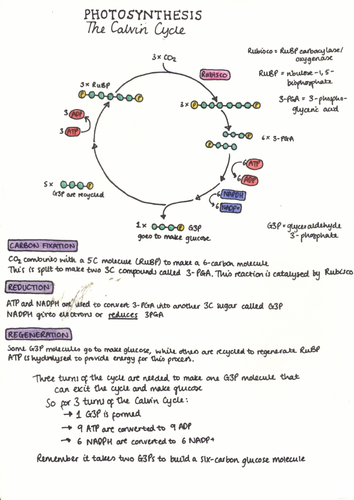 PHOTOSYNTHESIS
The Calvin Cycle
3x CO₂
Rubisco
Rubisco = RuBP carboxylase/
oxygenase
RuBP = ribulose-1,5-
bisphosphate
3-PGA = 3-phospho-
glyceric acid
3x RuBP
3x
6x 3-PGA
3 ADP
3 ATP
6 ATP
6 ADP
6 NADPH
6 NADP+
5x
G3P are recycled
1x G3P
goes to make glucose
G3P = glyceraldehyde
3-phosphate
CARBON FIXATION
CO₂ combines with a 5C molecule (RuBP) to make a 6-carbon molecule
This is split to make two 3C compounds called 3-PGA. This reaction is catalysed by Rubisco
REDUCTION
ATP and NADPH are used to convert 3-PGA into another 3C sugar called G3P
NADPH gives electrons or reduces 3PGA
REGENERATION
Some G3P molecules go to make glucose, while others are recycled to regenerate RuBP
ATP is hydrolysed to provide energy for this process.
Three turns of the cycle are needed to make one G3P molecule that
can exit the cycle and make glucose
So for 3 turns of the Calvin Cycle:
→ 1 G3P is formed
→ 9 ATP are converted to 9 ADP
→ 6 NADPH are converted to 6 NADP+
Remember it takes two G3Ps to build a six-carbon glucose molecule